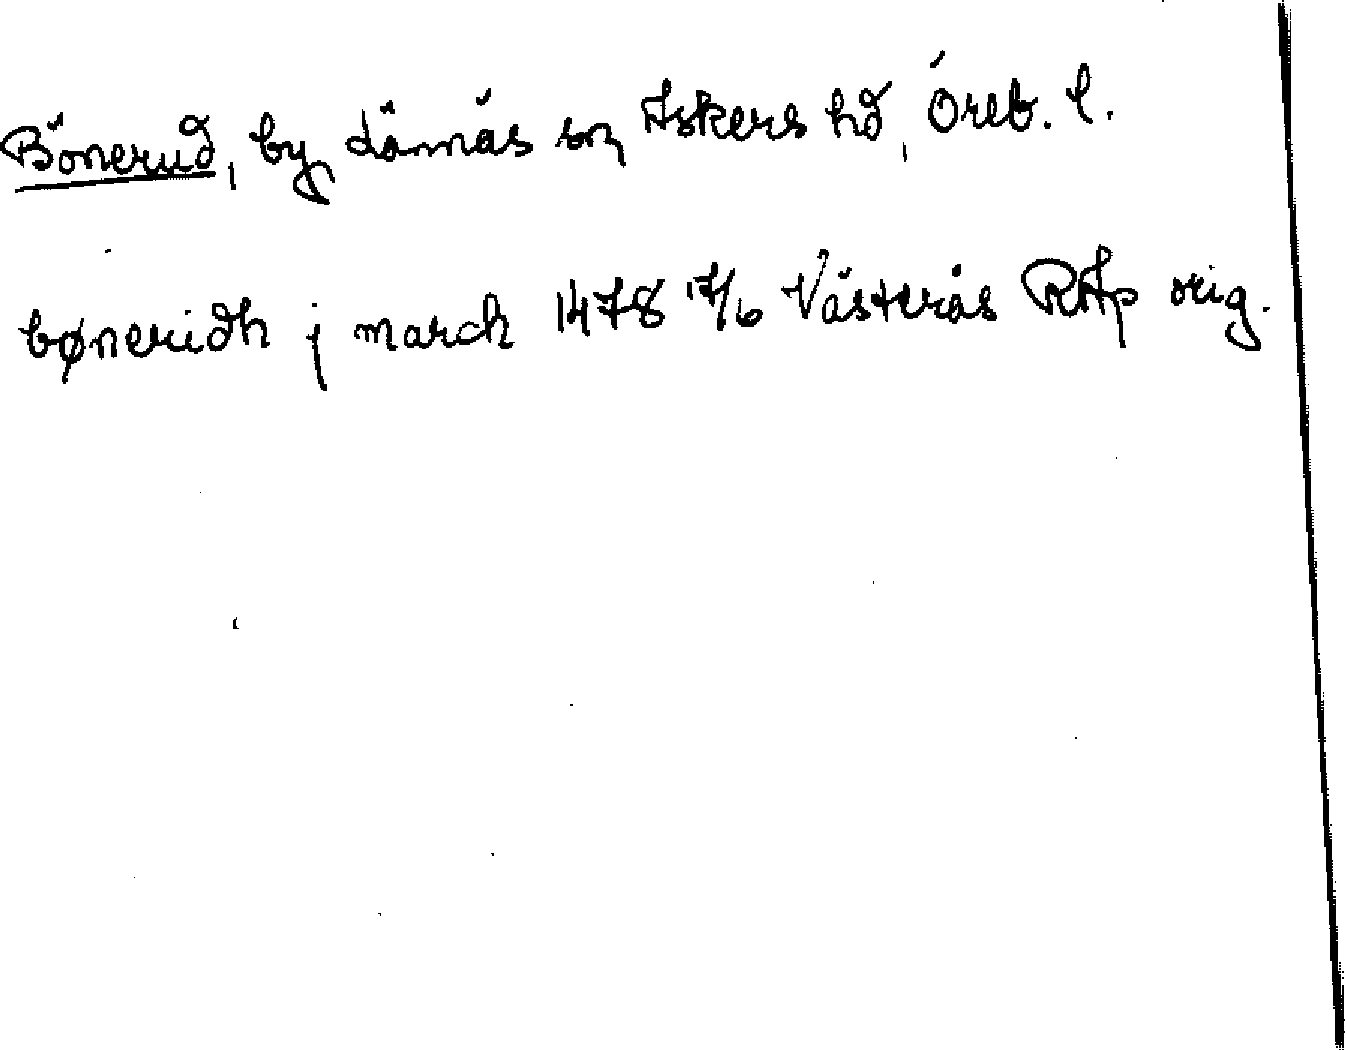 Bönerud, by, Lännäs sn, Askers hd, Öreb. l.
bøneridh j march 1478 17/6 Västerås RAp orig.